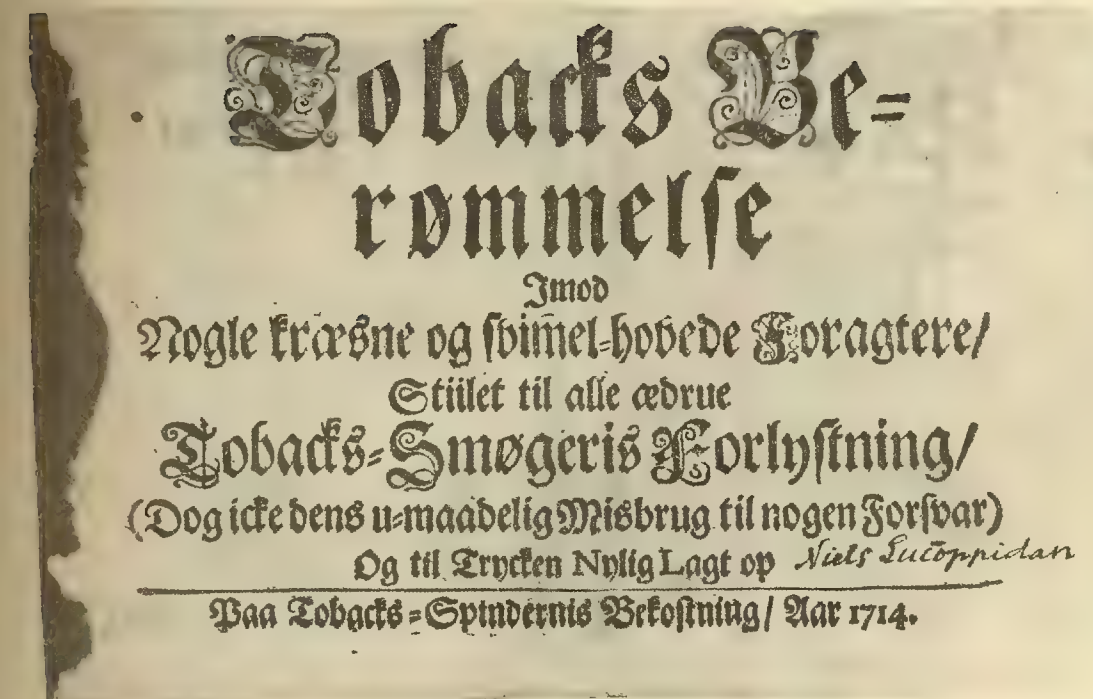 Tobacks Be-
rømmelse
Imod
Nogle kræsne og svim̄el-hovede Foragtere/
Stiilet til alle ædrue
Tobacks-Smøgeris Forlystning/
(Dog icke dens u-maadelig Misbrug til nogen Forsvar)
Og til Trycken Nylig Lagt op Niels Lucoppidan
Paa Tobacks-Spindernis Bekostning/ Aar 1714.